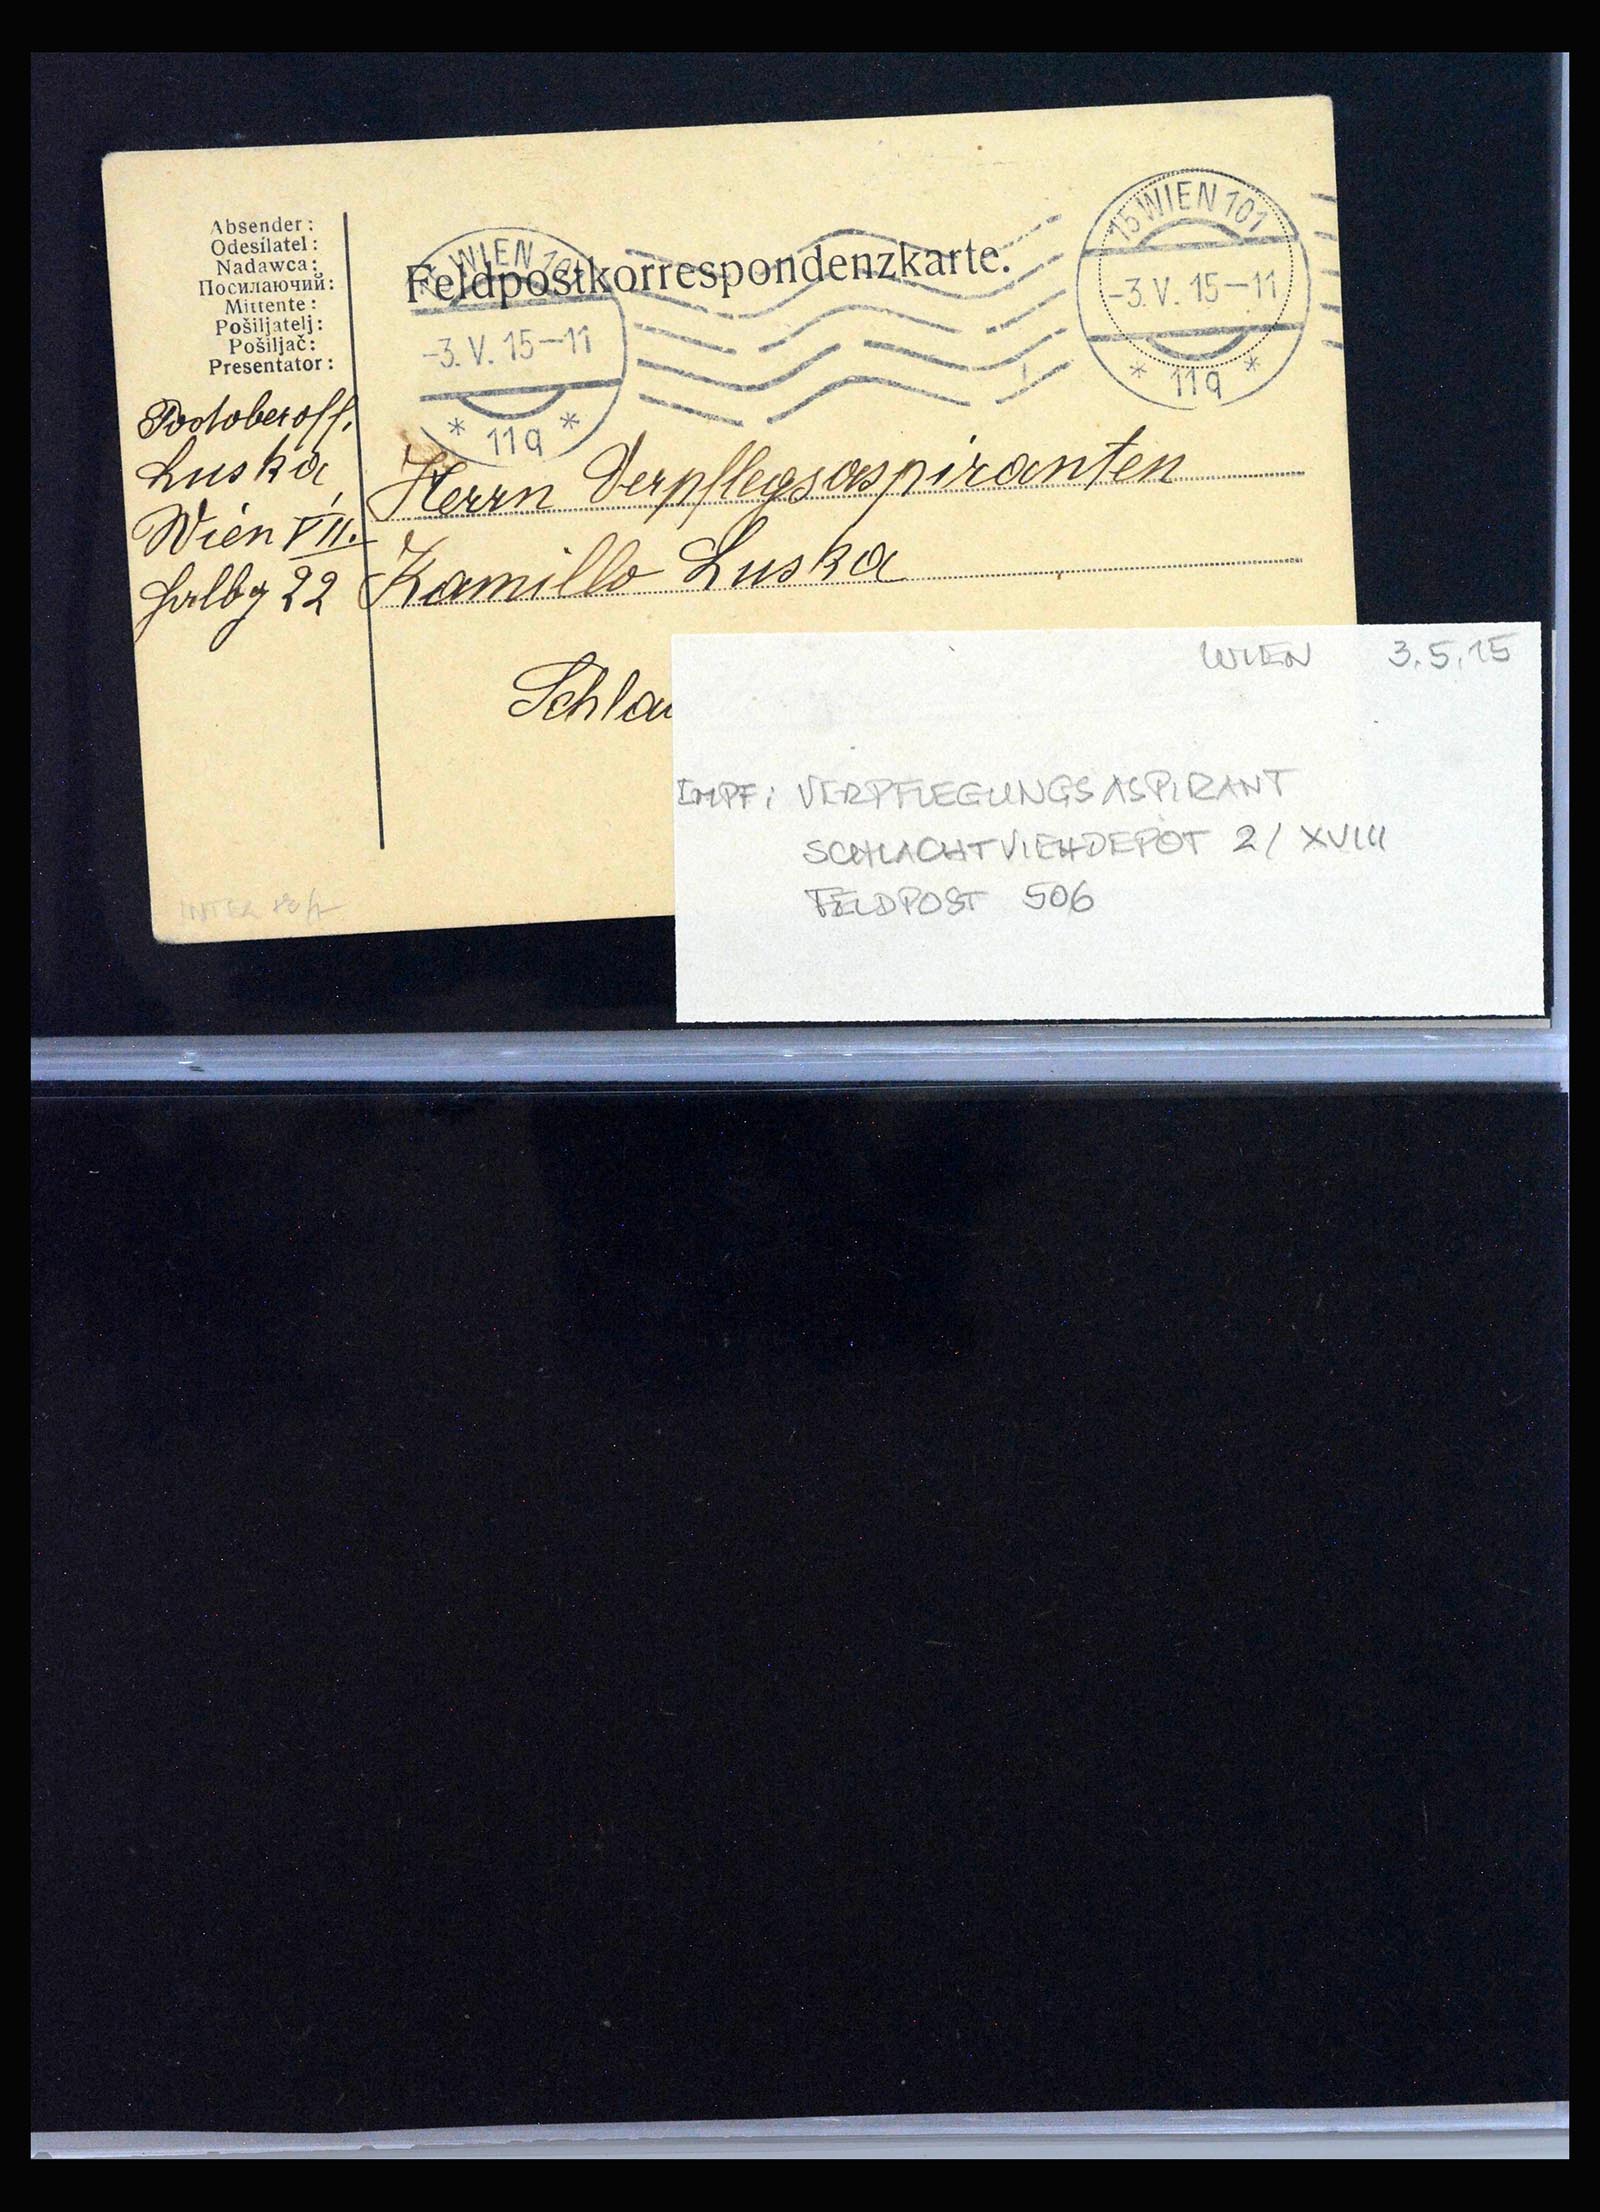 Absender:
Odesílatel:
Nadawca:
Посилаючий:
Mittente:
Pošiljatelj:
Pošiljač:
Presentator:
Postoberoff.
Luska,
Wien VII.
22
Feldpostkorrespondenzkarte.
WIEN 101
-3.V.15-11
* 11a *
15 WIEN 101
-3.V.15-11
* 11a *
Herrn Verpflegsaspiranten
Kamillo Luska
Schla
WIEN 3.5.15
EMPF: VERPFLEGUNGSASPIRANT
SCHLACHTVIEHDEPOT 2/XVIII
FELDPOST 506